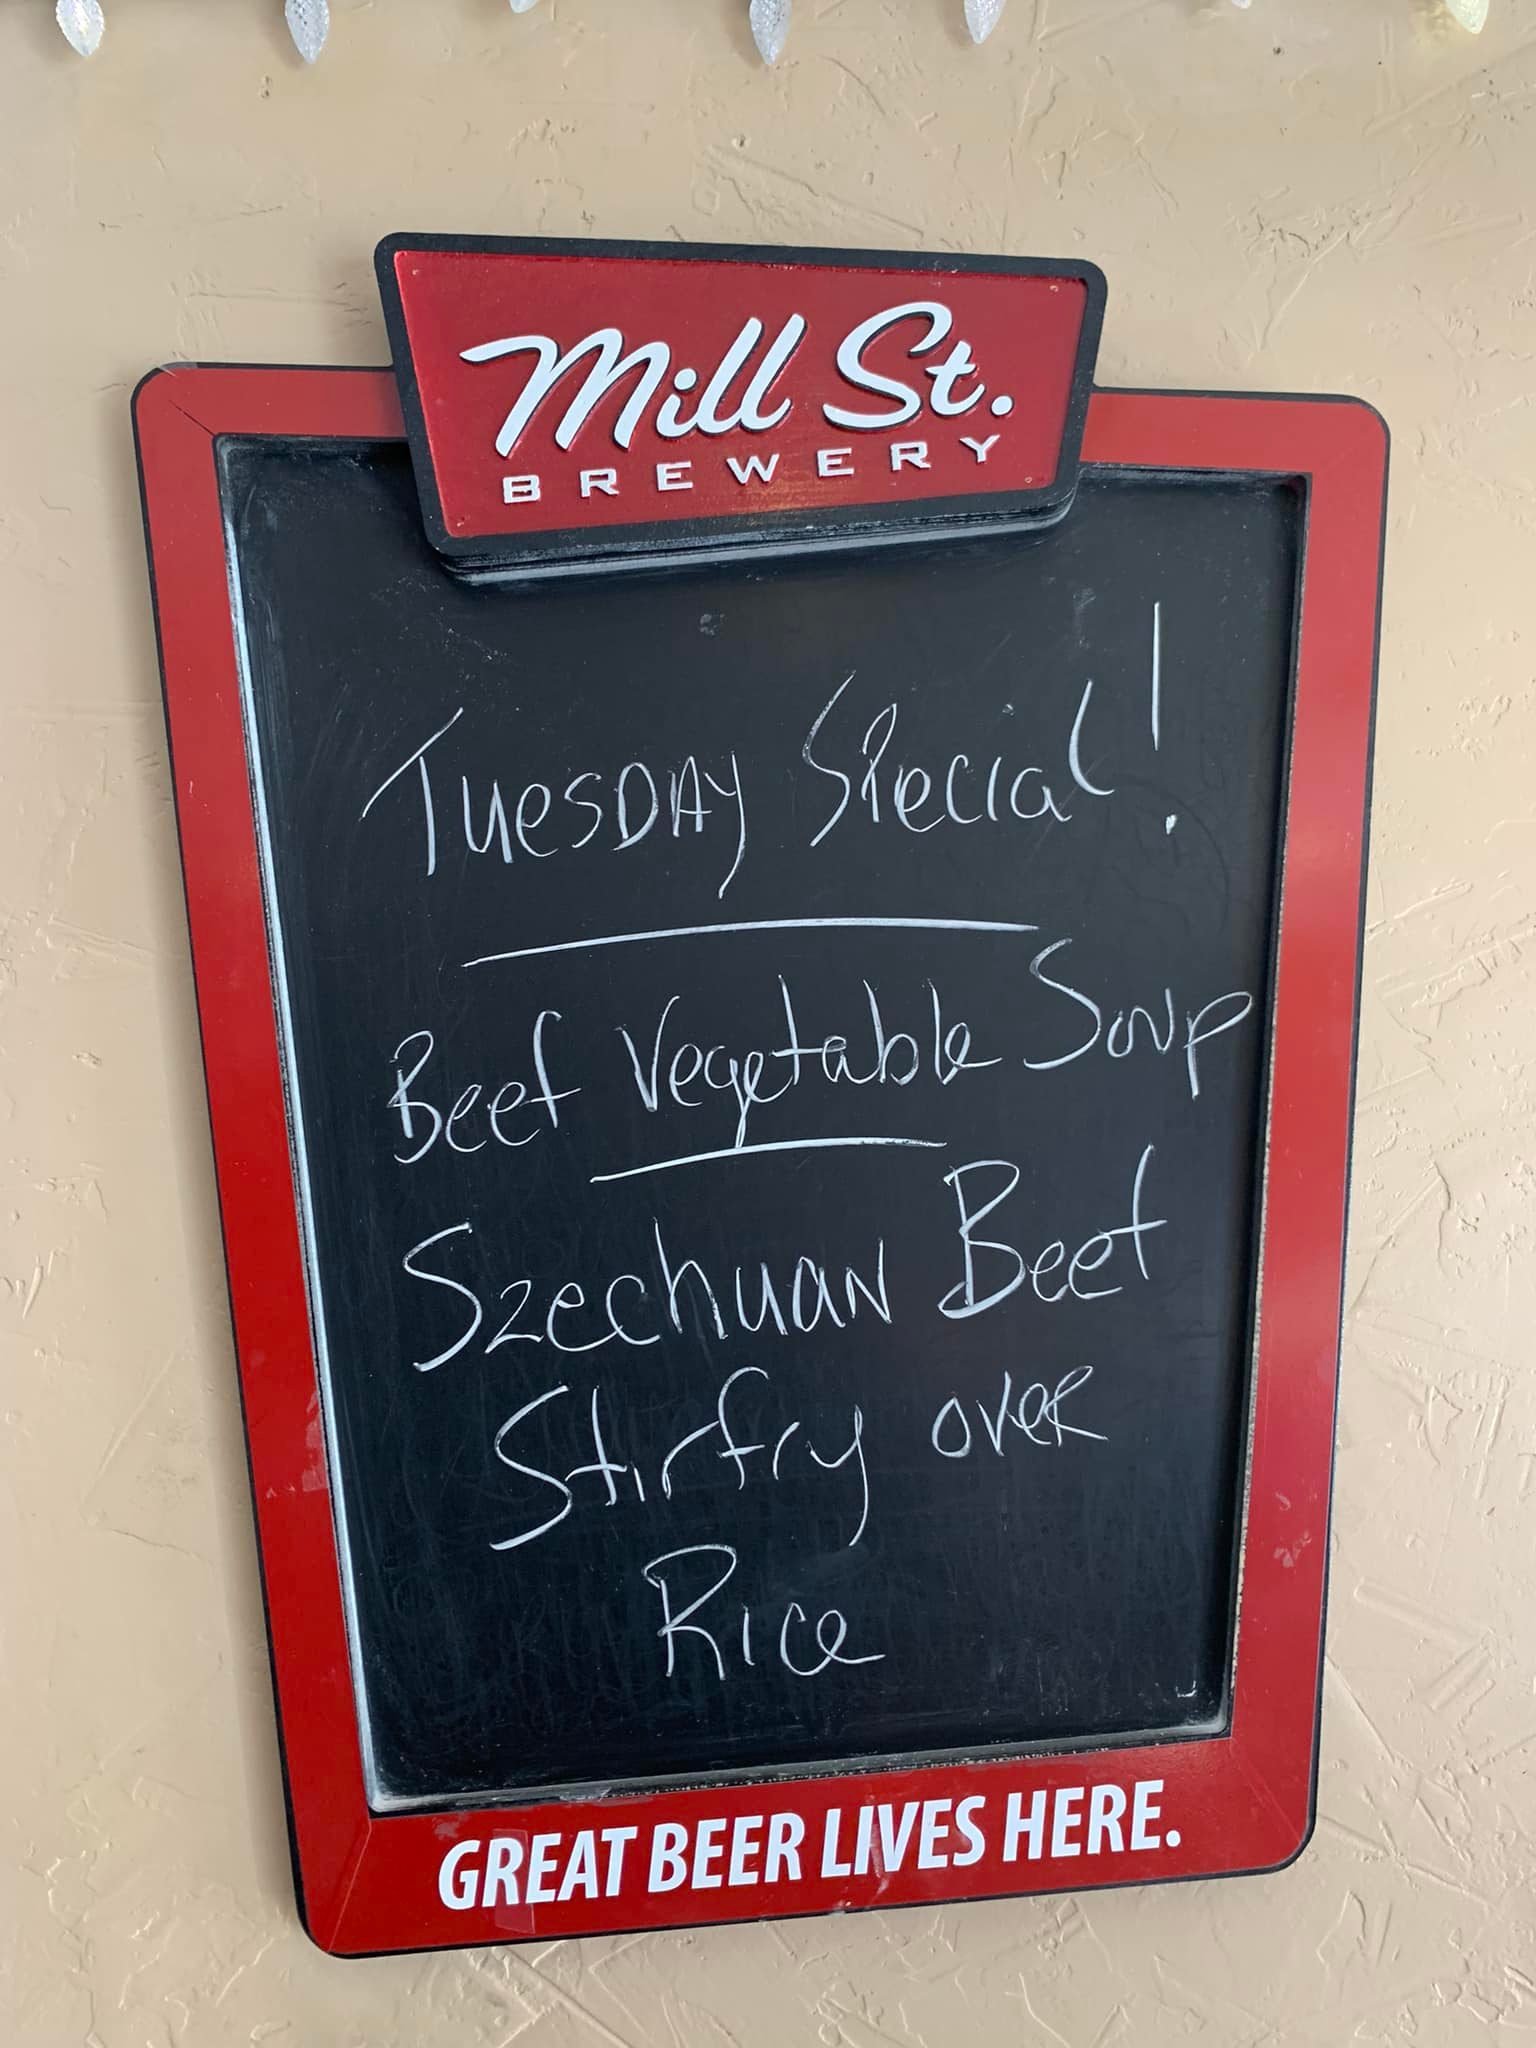 Mill St.
BREWERY
Tuesday Special!
Beef Vegetable Soup
Szechuan Beef
Stirfry over
Rice
GREAT BEER LIVES HERE.